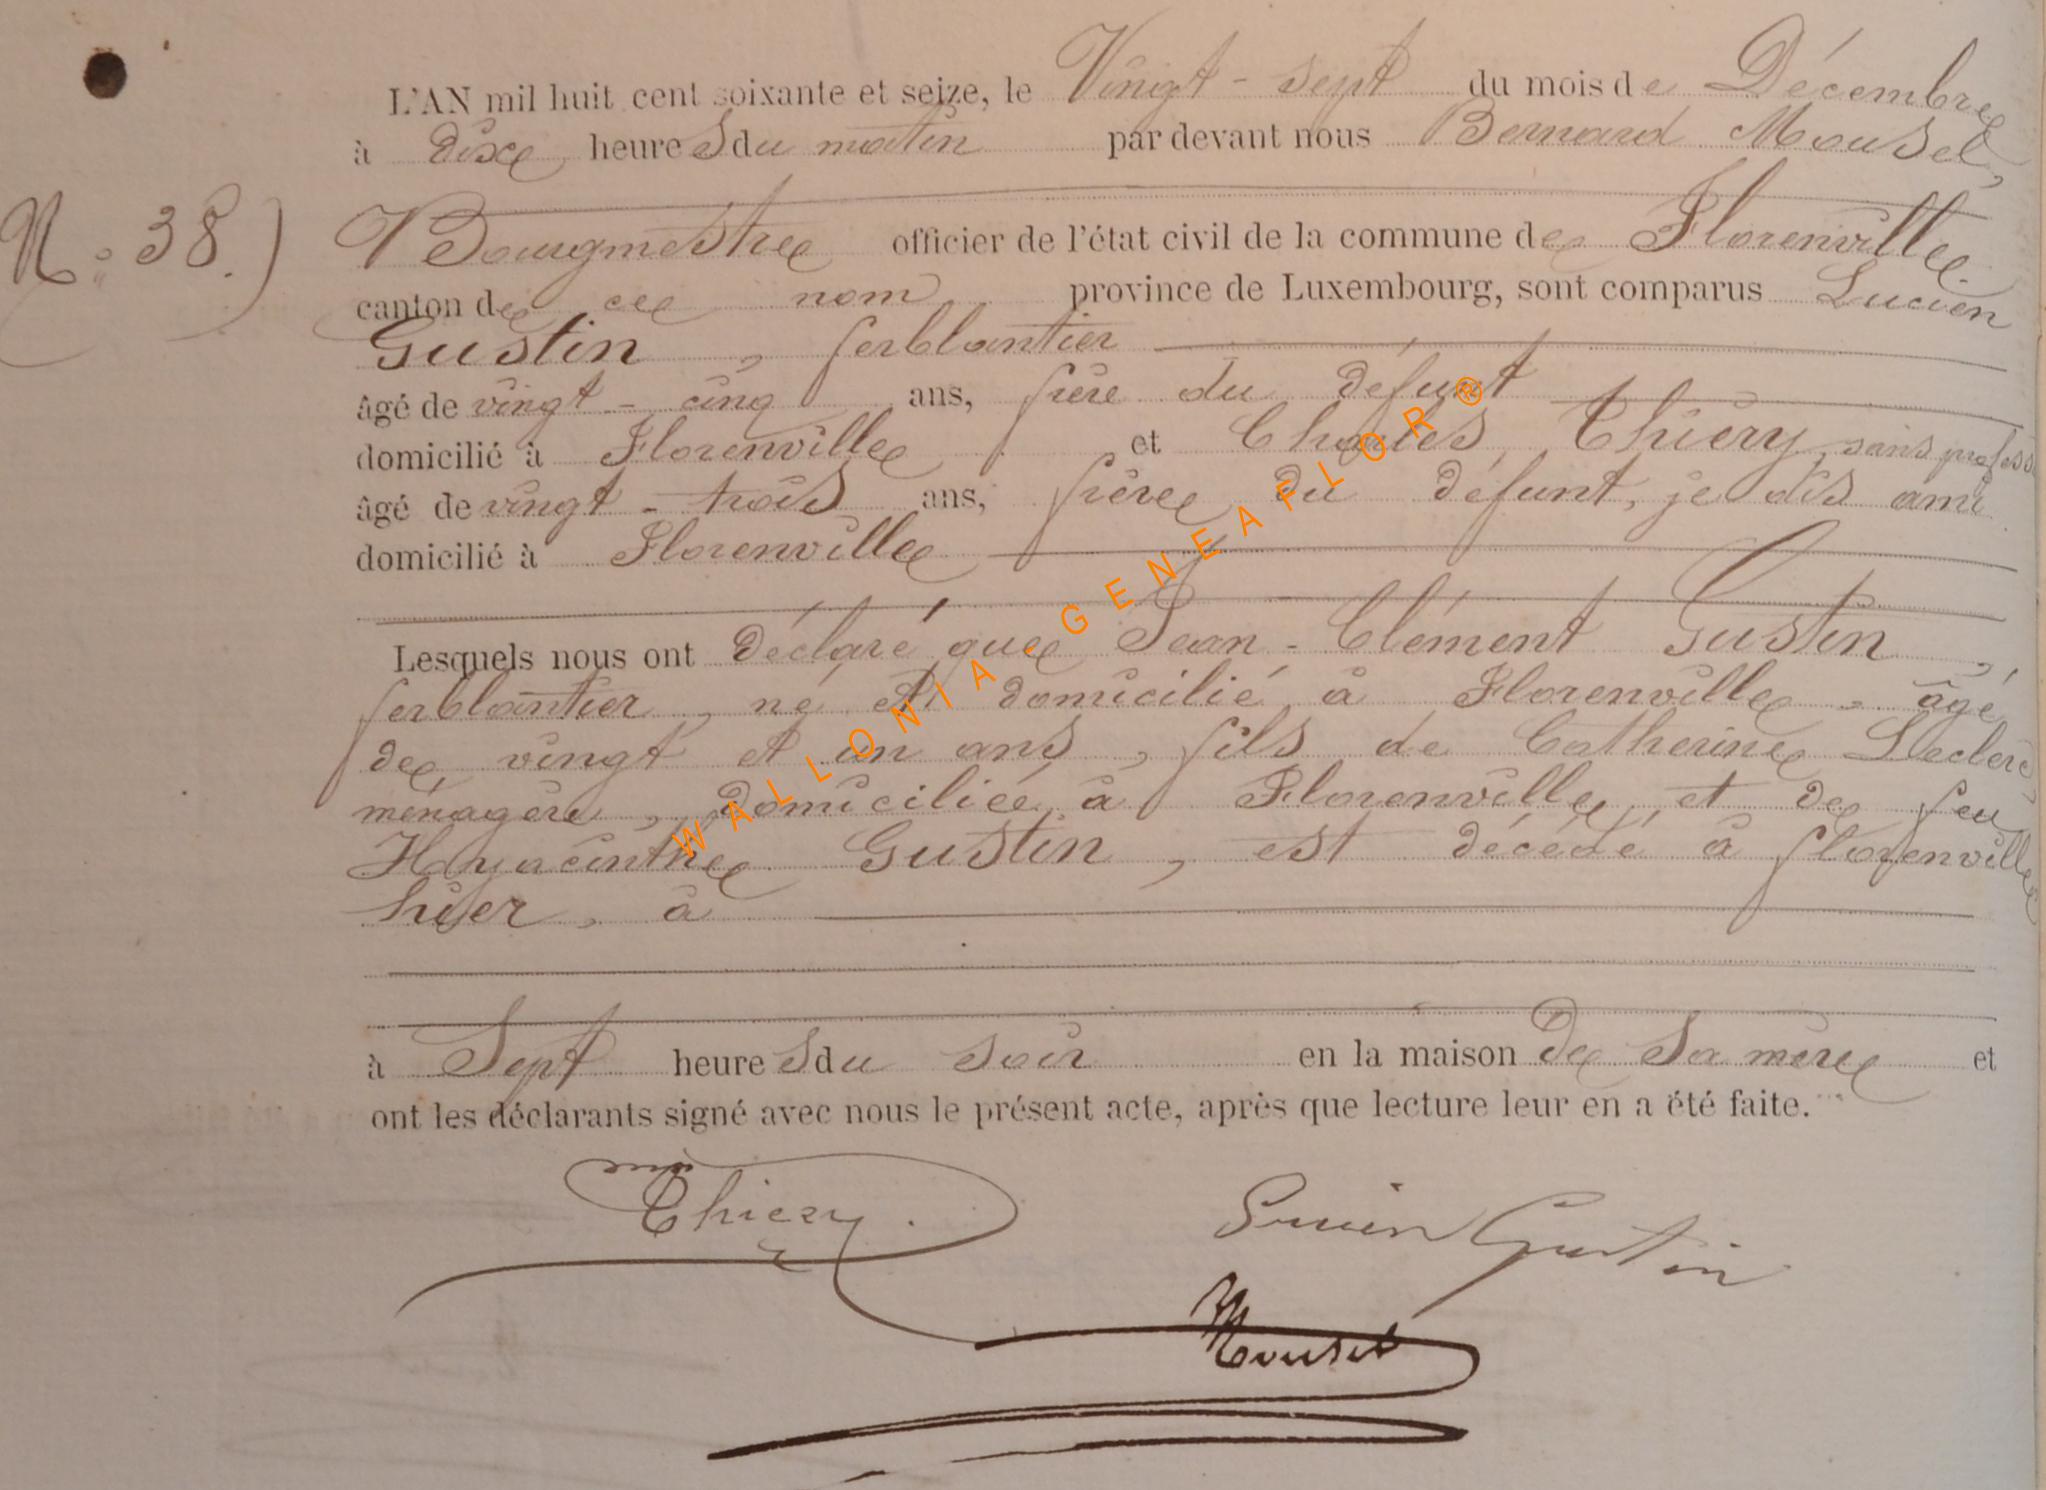 L'AN mil huit cent soixante et seize, le Vingt-sept du mois de Décembre
à dix heures du matin par devant nous Bernard Mousel,
N° 38.) Bourgmestre officier de l'état civil de la commune de Florenville
canton de ce nom province de Luxembourg, sont comparus Lucien
Gustin, ferblantier
âgé de vingt-cinq ans, frère du défunt
domicilié à Florenville et Charles Thiery, sans profess
âgé de vingt-trois ans, frère du défunt, je dis ami
domicilié à Florenville
Lesquels nous ont déclaré que Jean-Clément Gustin,
ferblantier, né et domicilié à Florenville, âgé
de vingt et un ans, fils de Catherine Leclerc,
ménagère, domiciliée à Florenville, et de feu
Hyacinthe Gustin, est décédé à florenville
hier, à
à Sept heures du soir en la maison de sa mère et
ont les déclarants signé avec nous le présent acte, après que lecture leur en a été faite.
Thiery. Lucien Gustin
Mousel
WALLONIA-GENEAFLOR®